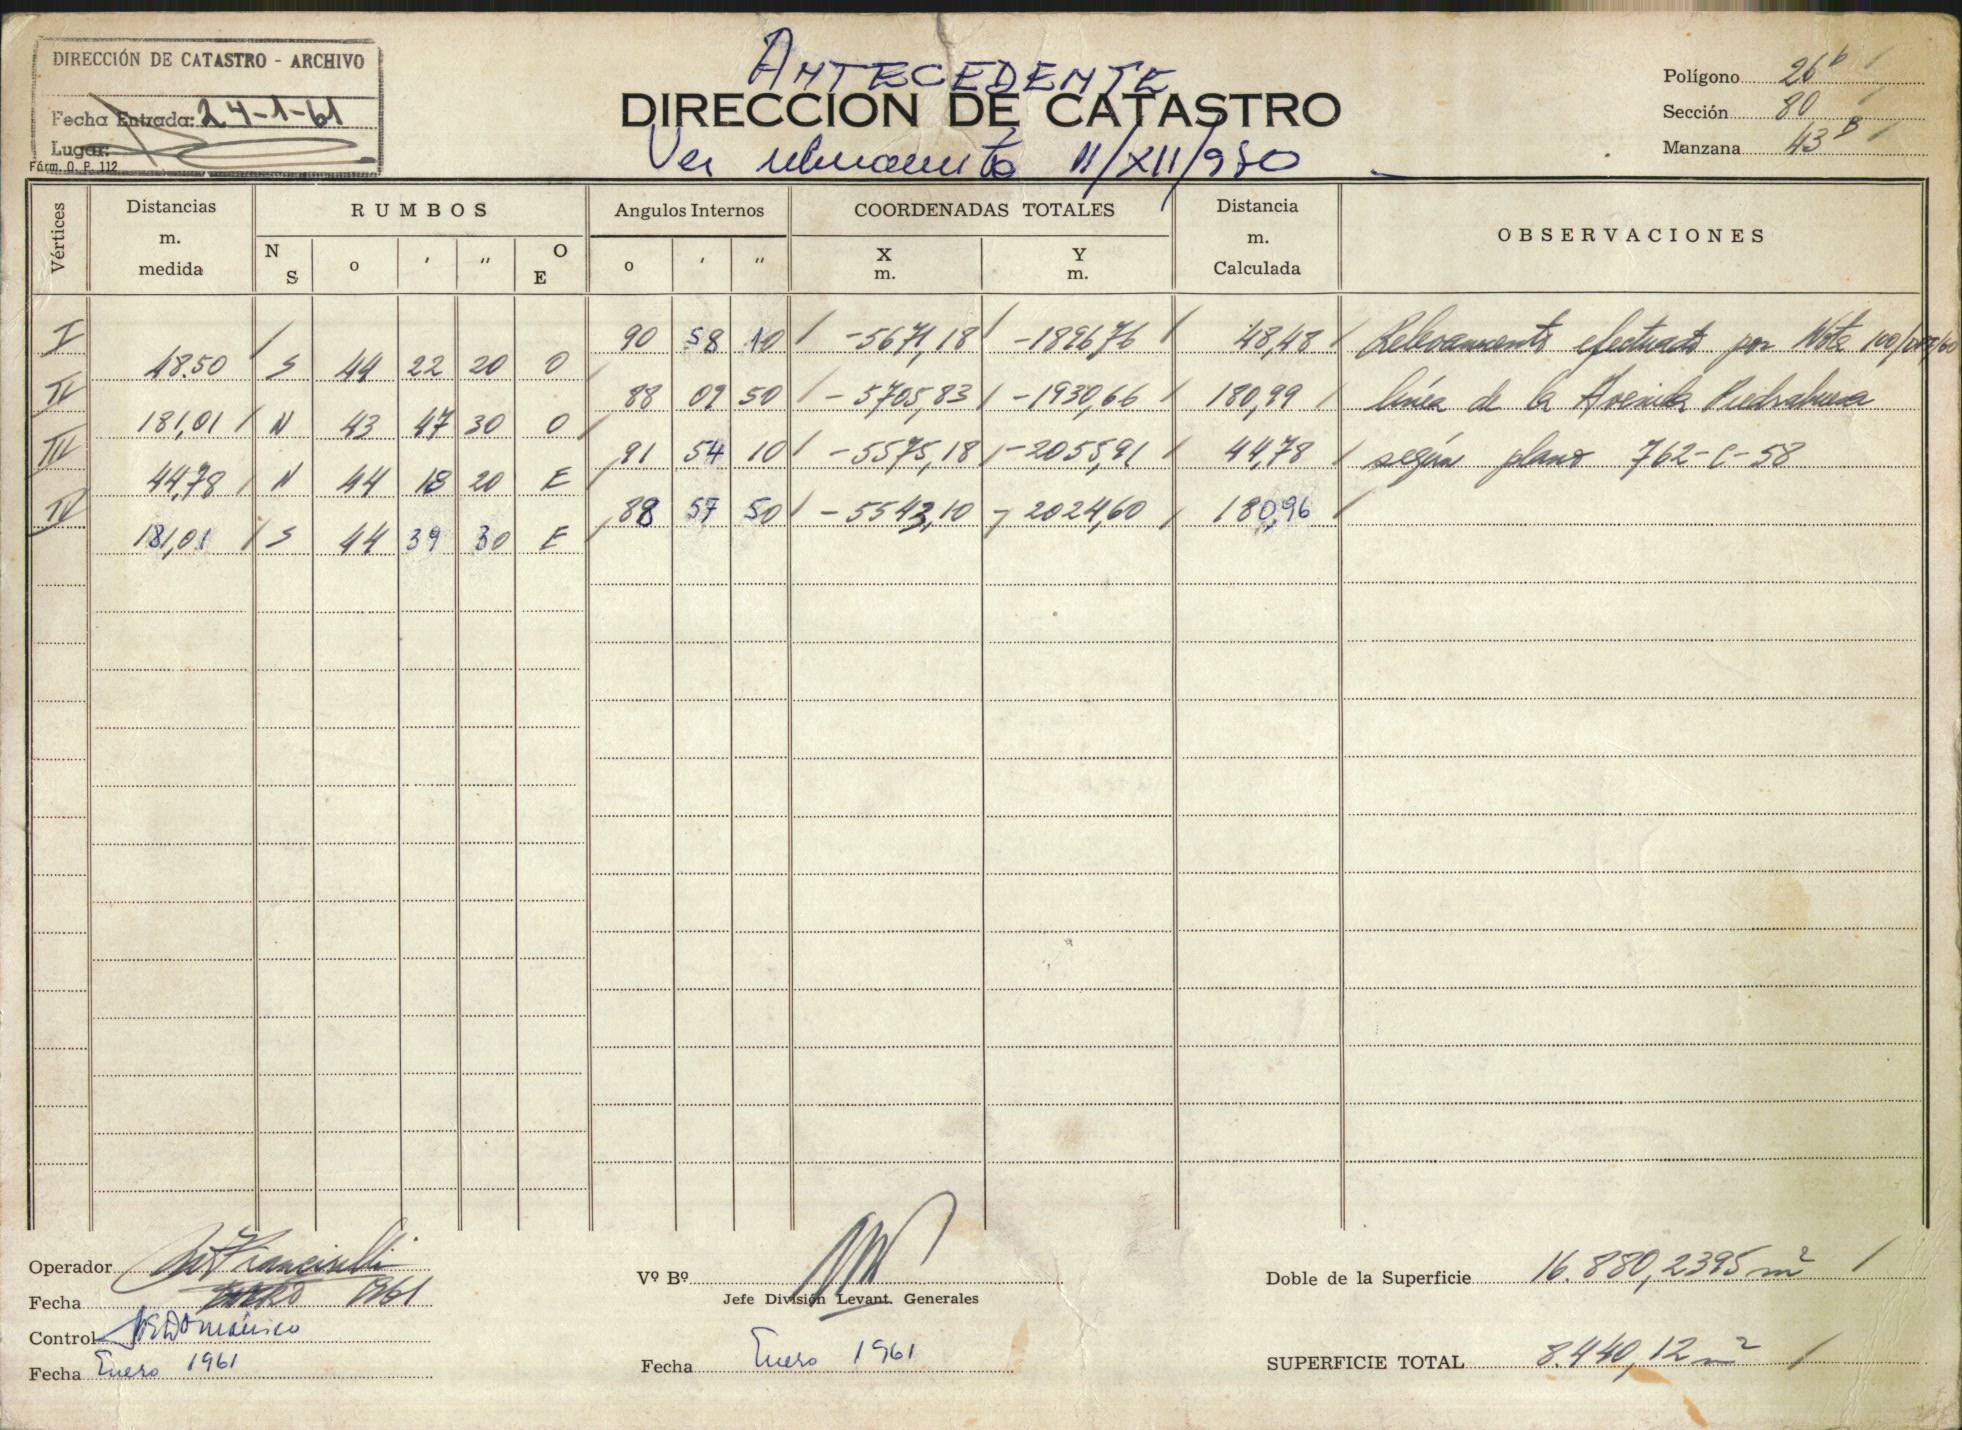 DIRECCIÓN DE CATASTRO - ARCHIVO
Fecha Entrada: 24-1-61
Lugar:
Fórm. O. P. 112
ANTECEDENTE
DIRECCION DE CATASTRO
Ver II/XII/980
Polígono 26b
Sección 80
Manzana 43B
Vértices
Distancias m. medida
RUMBOS
N S o ′ ″ O E
Angulos Internos
o ′ ″
COORDENADAS TOTALES
X m. Y m.
Distancia m. Calculada
OBSERVACIONES
I 90 58 10 -5671,18 -1896,76 48,48 Relevamiento efectuado por Nota
48.50 S 44 22 20 O
II 88 09 50 -5705,83 -1930,66 180,99 línea de la Avenida Piedrabuena
181,01 N 43 47 30 O
III 91 54 10 -5575,18 -2055,91 44,78 según plano 762-C-58
44,78 N 44 18 20 E
IV 88 57 50 -5543,10 -2024,60 180,96
181,01 S 44 39 30 E
Operador
Fecha Enero 1961
Control
Fecha Enero 1961
Vº Bº
Jefe División Levant. Generales
Fecha Enero 1961
Doble de la Superficie 16.880,2395 m2
SUPERFICIE TOTAL 8.440,12 m2